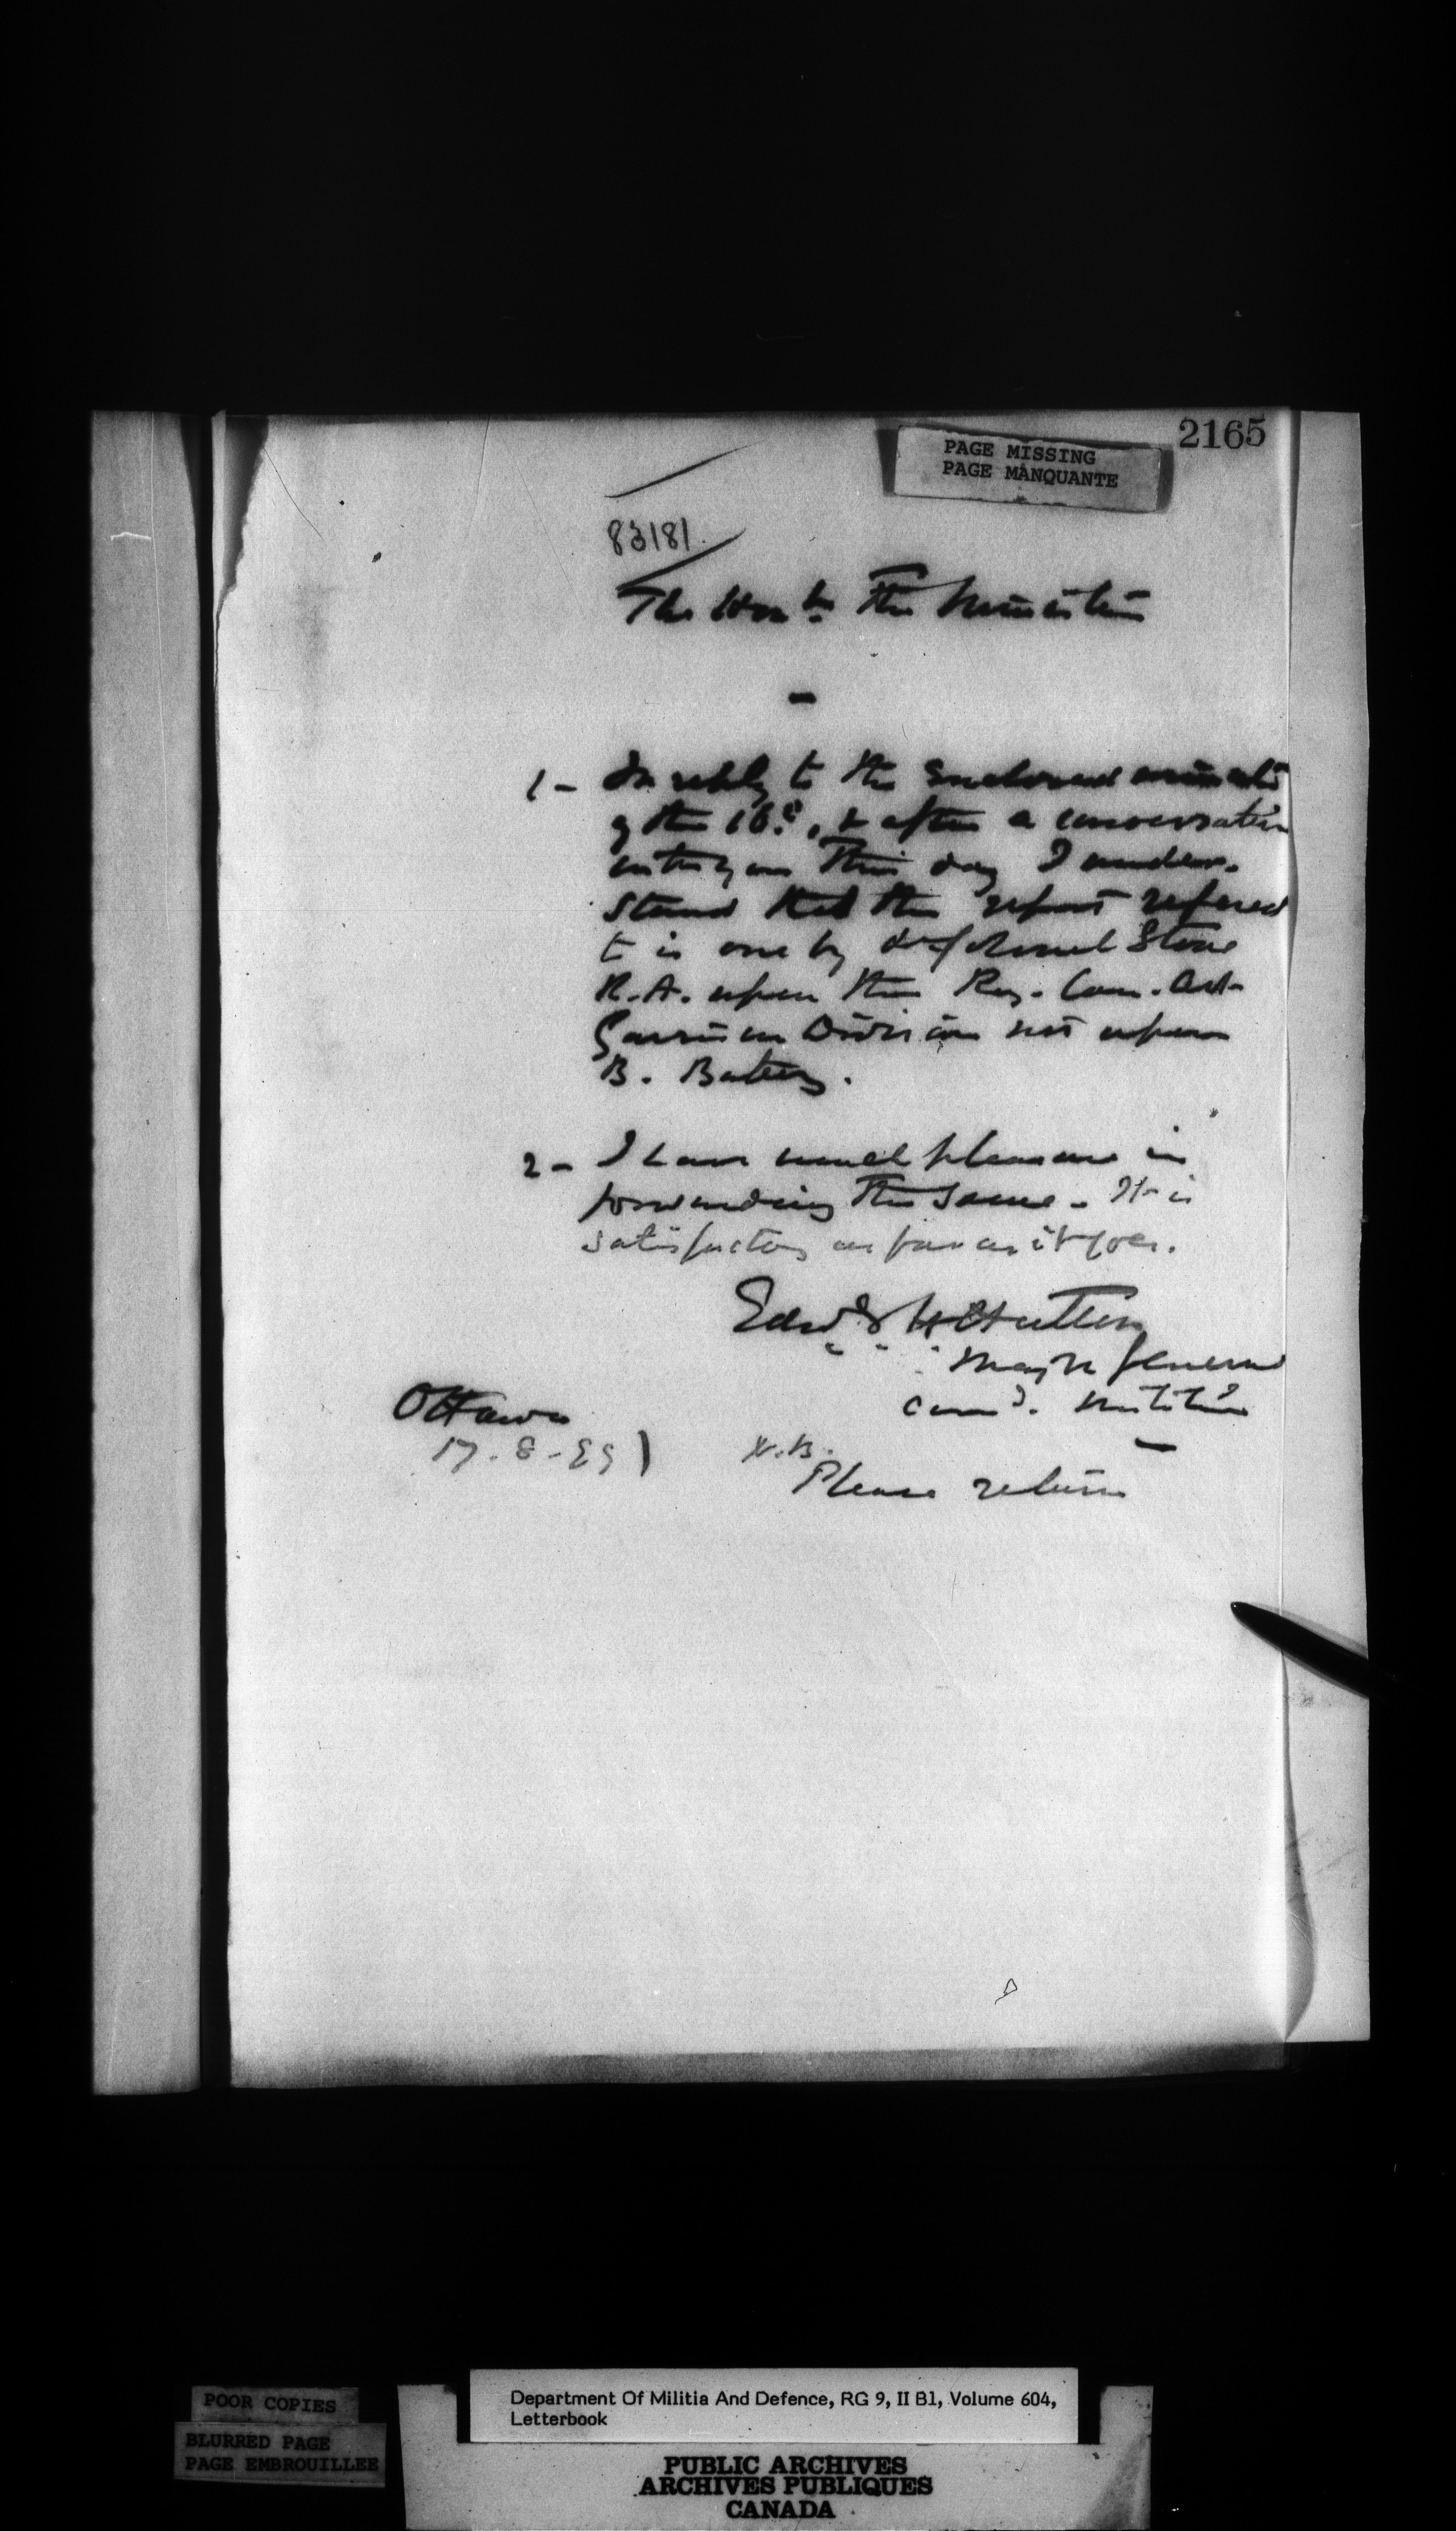 2165
PAGE MISSING
PAGE MANQUANTE
83181
The Honble The Minister
1- In reply to the enclosed
of the 16th, & after a conversation
with you this day I under-
stand that the report refered
to is one by Lt Colonel Stone
R.A. upon the Roy. Can. Art.
Garrison Division not upon
B. Battery.
2- I have much pleasure in
forwarding the same - It is
satisfactory as far as it goes.
Edwd H Hutton
Major General
Comd. Militia
Ottawa
17. 8. 99
N.B.
Please return
POOR COPIES
BLURRED PAGE
PAGE EMBROUILLEE
Department Of Militia And Defence, RG 9, II B1, Volume 604,
Letterbook
PUBLIC ARCHIVES
ARCHIVES PUBLIQUES
CANADA